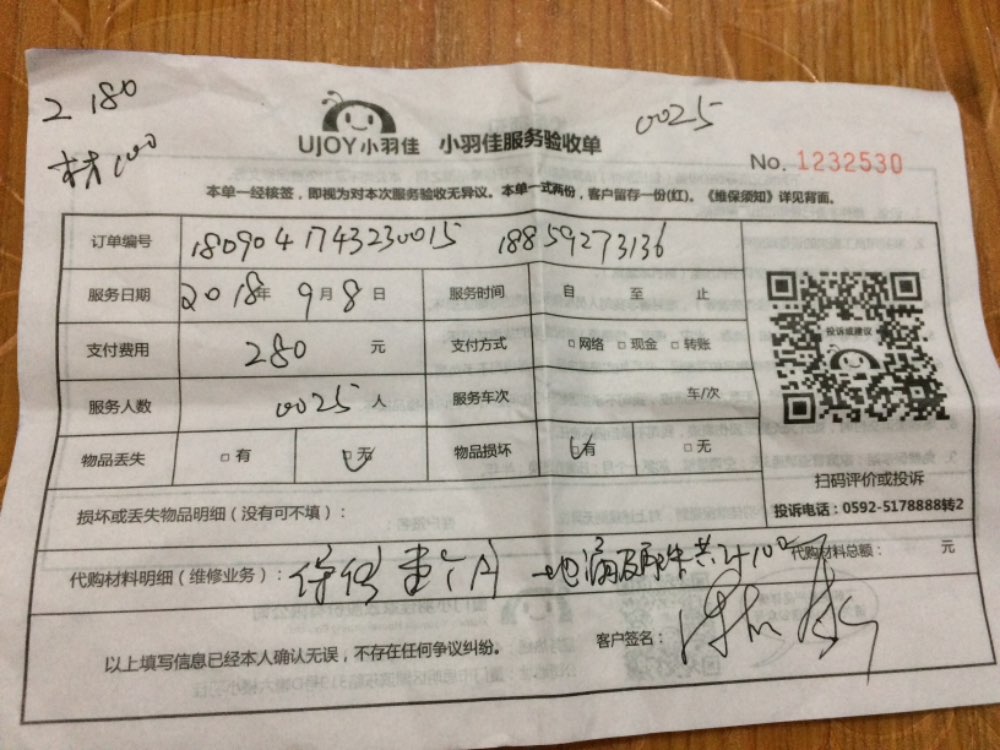 2 180
0025
材100
UJOY小羽佳 小羽佳服务验收单
No. 1232530
本单一经核签，即视为对本次服务验收无异议。本单一式两份，客户留存一份(红)。《维保须知》详见背面。
订单编号 1809041743230015 18859273136
服务日期 2018年 9月8日 服务时间 自 至 止
支付费用 280 元 支付方式 □网络 □现金 □转账
投诉或建议
服务人数 0025 人 服务车次 车/次
物品丢失 □有 □无 物品损坏 □有 □无
扫码评价或投诉
损坏或丢失物品明细（没有可不填）：
投诉电话：0592-5178888转2
代购材料明细（维修业务）： 保修壹个月 地漏及配件共计100 代购材料总额： 元
客户签名：
以上填写信息已经本人确认无误，不存在任何争议纠纷。